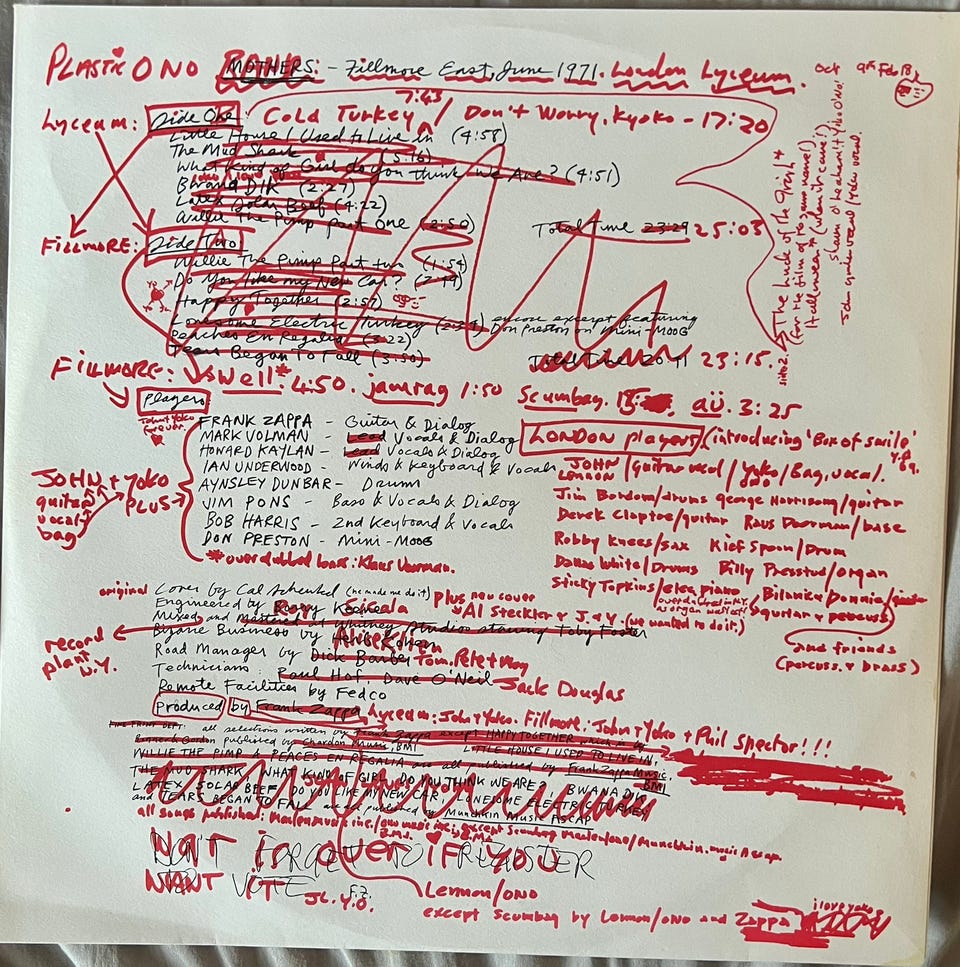 PLASTIC ONO BAND MOTHERS: - Fillmore East, June 1971. London Lyceum. Oct 9th Feb
Lyceum: Side One: Cold Turkey 7:43 / Don't Worry, Kyoko - 17:20
Little House I Used to Live in (4:58)
The Mud Shark (5:16)
What Kind of Girl do you think we Are? (4:51)
Bwana DIK (2:27)
Latex Solar Beef (4:22)
Willie The Pimp Part One (2:50)
Total Time 23:29 25:03
FILLMORE: Side Two:
Willie The Pimp Part two (1:54)
Do You like my New Car?
Happy Together (2:57)
Lonesome Electric Turkey encore excerpt featuring
Don Preston on Mini-MOOG
Peaches En Regalia (3:22)
Tears Began To Fall (3:50)
Total Time 20:41 23:15.
The Luck of the Irish
(for the film of the same name!)
John guitar vocal/Yoko vocal
FILLMORE: Well* 4:50. jamrag 1:50 Scumbag. aü. 3:25
Players
John+Yoko
forever
FRANK ZAPPA - Guitar & Dialog
MARK VOLMAN - Lead Vocals & Dialog
HOWARD KAYLAN - Lead Vocals & Dialog
IAN UNDERWOOD - Winds & Keyboard & Vocals
AYNSLEY DUNBAR - Drums
JIM PONS - Bass & Vocals & Dialog
BOB HARRIS - 2nd Keyboard & Vocals
DON PRESTON - Mini-MOOG
*overdubbed bass: Klaus Voorman.
JOHN + Yoko PLUS
guitar
vocal
bag
LONDON players (introducing 'Box of smile' Y.O 69.
JOHN LENNON /guitar vocal / Yoko ono /Bag, vocal.
Jim Bordom/drums george Harrisong/guitar
Derek Claptoe/guitar Raus Doorman/base
Robby Knees/sax Kief Spoon/Drum
Dallas White/Drums Billy Presstud/organ
Sticky Topkins/elec piano
(overdubbed in N.Y.
Bilanie & Donnie/guitar & percuss.
and friends
(percuss. & brass)
original Cover by Cal Schenkel (he made me do it) plus new cover
Al Steckler + J. + Y. (we wanted to do it.)
Engineered by Roy Cicala
Mixed and mastered at Whitney Studios starring Toby Foster
record plant N.Y.
Bizarre Business by Herb Cohen
Road Manager by Dick Barber Tom, Pete + May
Technicians: Paul Hof, Dave O'Neil Jack Douglas
Remote Facilities by Fedco
Produced by Frank Zappa Lyceum: John + Yoko. Fillmore. John + Yoko + Phil Spector!!!
THE PRINT DEPT: all selections written by Frank Zappa except HAPPY TOGETHER
Gordon published by Chardon Music, BMI LITTLE HOUSE I USED TO LIVE IN,
WILLIE THE PIMP & PEACES EN REGALIA are all published by Frank Zappa Music, BMI
THE MUD SHARK, WHAT KIND OF GIRL DO YOU THINK WE ARE? BWANA DIK
LATEX SOLAR BEEF, DO YOU LIKE MY NEW CAR, LONESOME ELECTRIC TURKEY
and TEARS BEGAN TO FALL are all published by Munchkin Music ASCAP
all songs published: Maclen music inc./ono music inc. B.M.I. except Scumbag Maclen/ono/Munchkin. music Ascap.
DON'T FORGET TO REGISTER
TO VOTE F.Z.
War is over if you
WANT IT JL. Y.O.
Lennon/ONO
except Scumbag by Lennon/ONO and Zappa
i love yoko